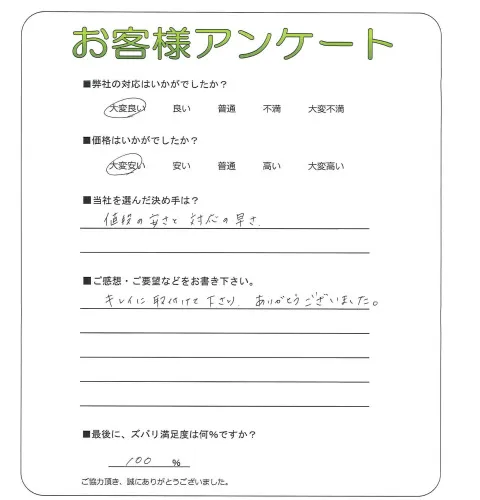 お客様アンケート
■弊社の対応はいかがでしたか？
大変良い 良い 普通 不満 大変不満
■価格はいかがでしたか？
大変安い 安い 普通 高い 大変高い
■当社を選んだ決め手は？
値段の安さと 対応の早さ.
■ご感想・ご要望などをお書き下さい。
キレイに取付けて下さり ありがとうございました。
■最後に、ズバリ満足度は何％ですか？
100 ％
ご協力頂き、誠にありがとうございました。